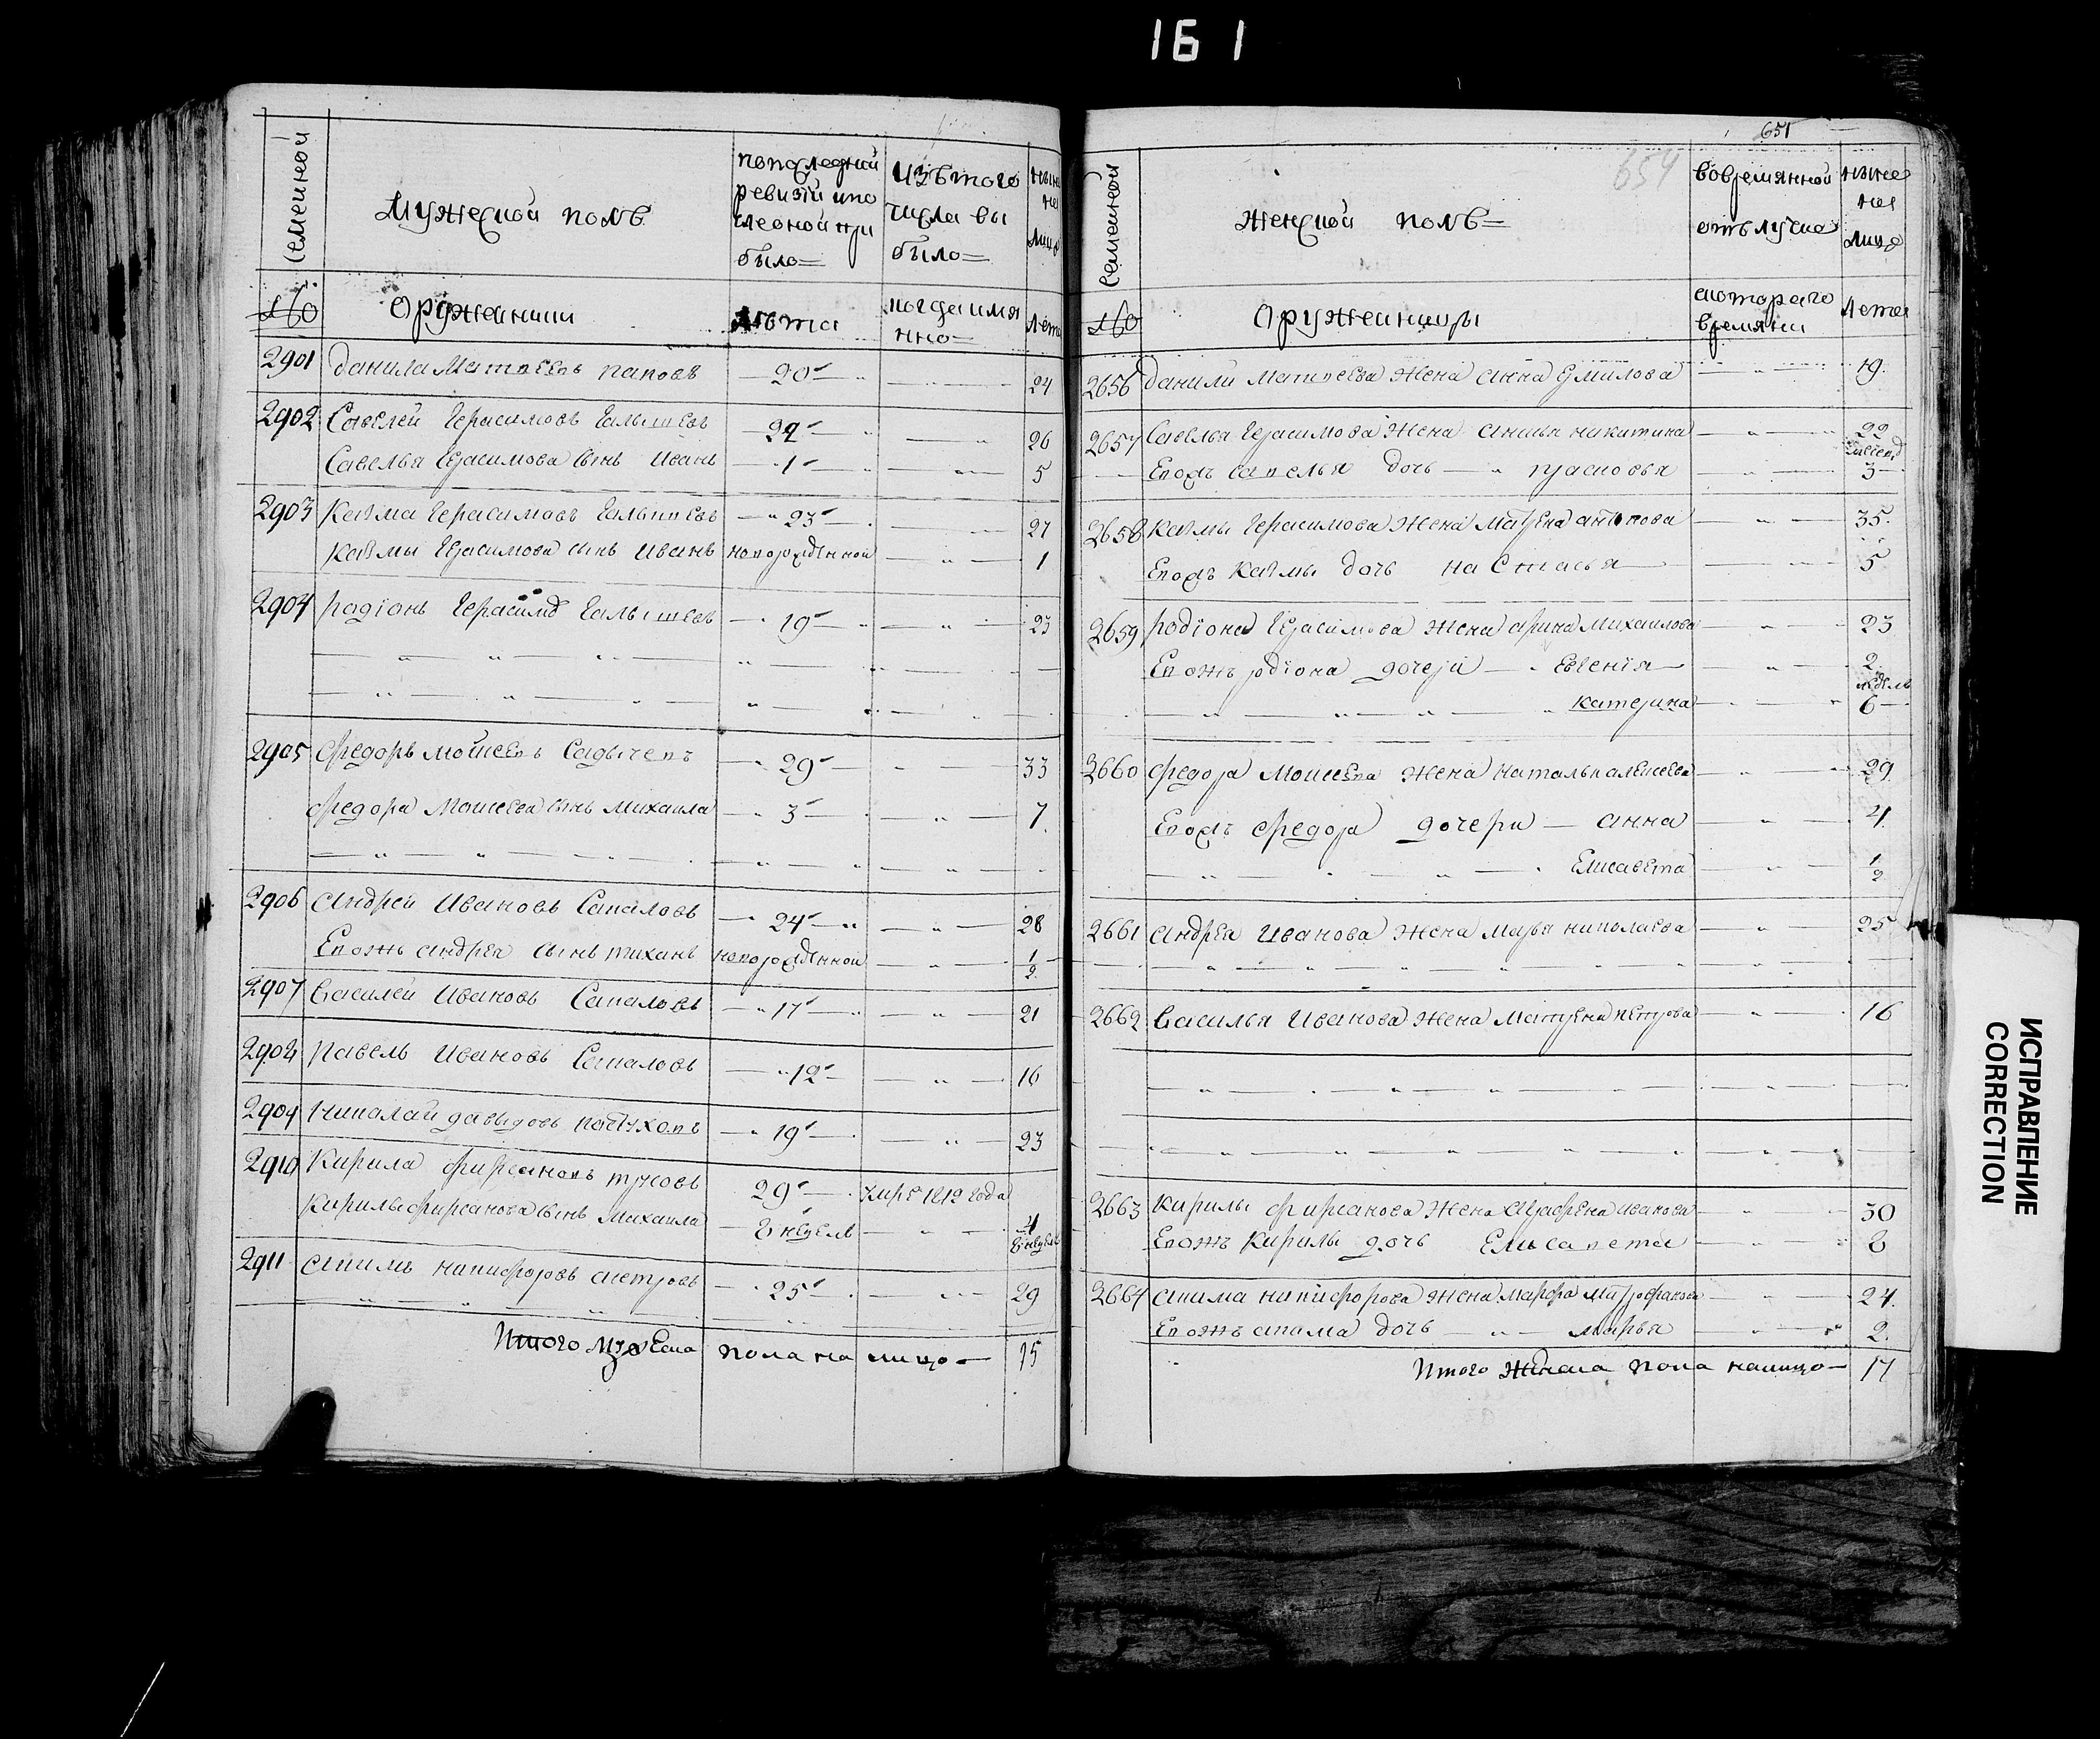 161
Семейной
Мужеской полъ
попоследней ревизiи ипо
Изътого числа вы было=
ныне на лицо
№
Оружейники
Лѣта
когда имянно=
лета
2901 Данила Матвеевъ Паповъ — 20 — 24
2902 Савелей Герасимовъ Галышевъ — 22 — 26
Савелья Герасимова сынъ Иванъ — 1 — 5
2903 Казма Герасимовъ Галышевъ — 23 — 27
Казмы Герасимова сынъ Иванъ новорожденной — 1
2904 Радiонъ Герасимъ Галышевъ — 19 — 23
2905 Федоръ Моисеевъ Садычевъ — 29 — 33
Федора Моисеева сынъ Михаила — 3 — 7
2906 Андрей Ивановъ Сапаловъ — 24 — 28
Евожъ Андрея сынъ Тиханъ новорожденной — 1/2
2907 Василей Ивановъ Сапаловъ — 17 — 21
2908 Павелъ Ивановъ Сапаловъ — 12 — 16
2909 Николай Давыдовъ Пастуховъ — 19 — 23
2910 Кирила Фирсановъ Трусовъ — 29 — 1812 года
Кирилы Фирсанова сынъ Михаила — 8 недель — 4 8 недель
2911 Акимъ Никифоровъ — 25 — 29
Итого мужеска пола на лицо — 15
651
654
Семейной
Женской полъ=
вовремянной отълучке
ныне на лицо
№
Оружейницы
скотораго времяни
Лета
2656 Данилы Матвеева жена Анна Ермилова — 19
2657 Савелья Герасимова жена Аксинья Никитина — 22
Евожъ Савелья дочь — Прасковья — 3
2658 Казмы Герасимова жена Матрена Антипова — 35
Евожъ Казмы дочь Настасья — 5
2659 Радiона Герасимова жена Арина Михайлова — 23
Евожъ Радiона дочери — Евгенiя — 2
Катерина — недель 6
2660 Федора Моисеева жена Наталья Алексеева — 29
Евожъ Федора дочери — Анна — 4
Елисавета — 1/2
2661 Андрея Иванова жена Марья Николаева — 25
2662 Василья Иванова жена Матрена Петрова — 16
2663 Кирилы Фирсанова жена Аграфена Иванова — 30
Евожъ Кирилы дочь Елисавета — 8
2664 Акима Никифорова жена Марфа Митрофанова — 24
Евожъ Акима дочь — Марья — 2
Итого женска пола налицо — 17
ИСПРАВЛЕНИЕ
CORRECTION